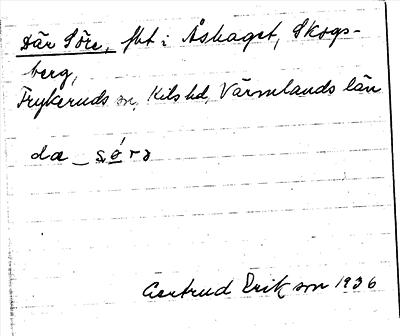 Där Söre, fbt i Åshaget, Skogs-
berg,
Frykeruds sn, Kils hd, Värmlands län
da_ sǿrə
Gertrud Erikson 1936